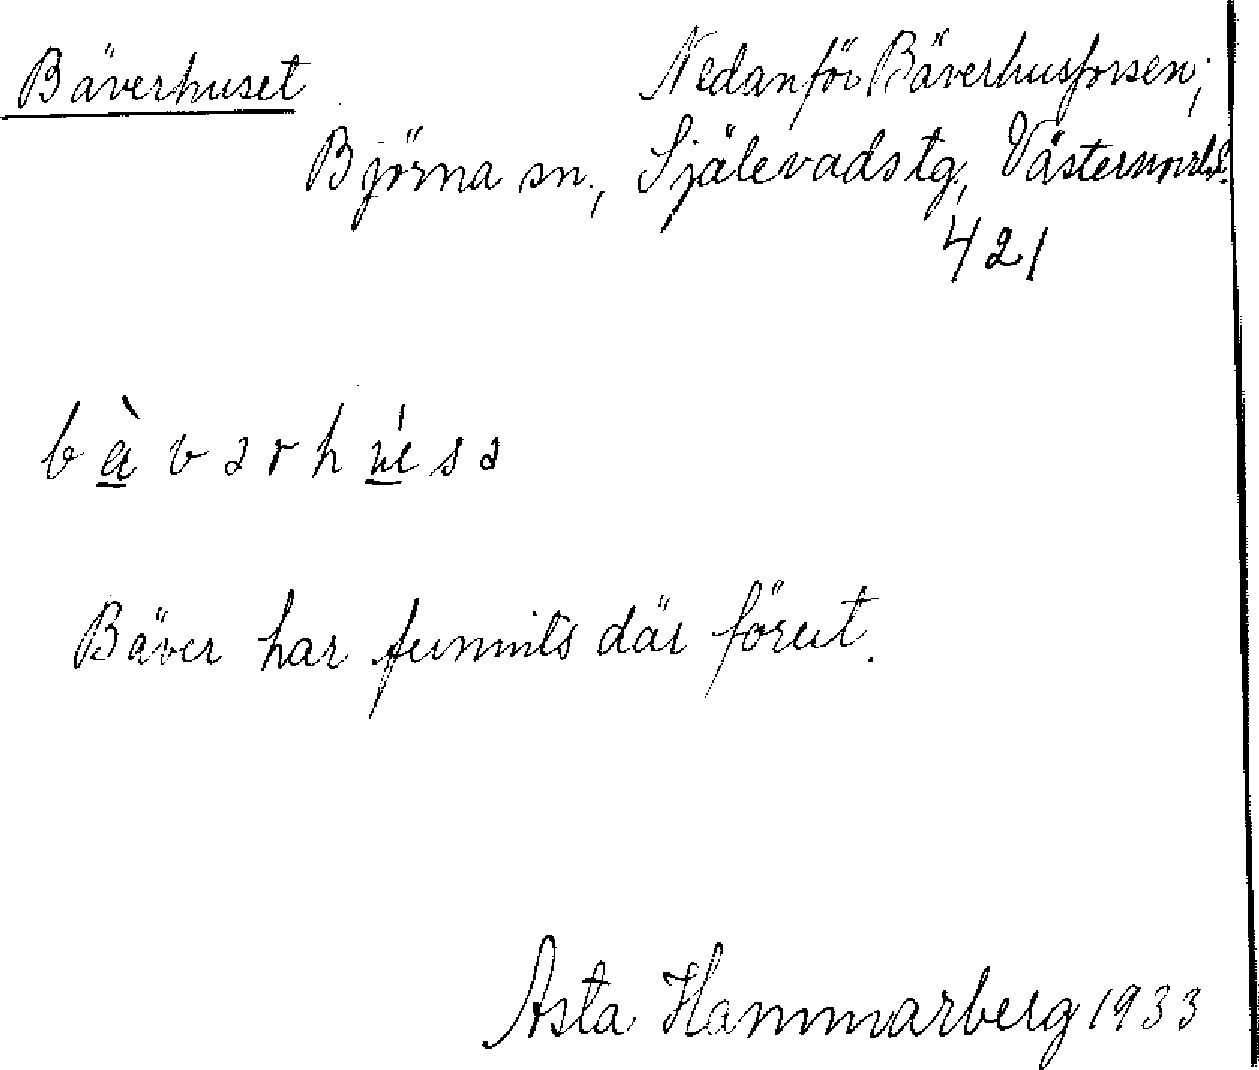 Bäverhuset Nedanför Bäverhusforsen;
Björna sn., Själevads tg, Västernorrl.
421
bàvərhúsə
Bäver har funnits där förut.
Asta Hammarberg 1933